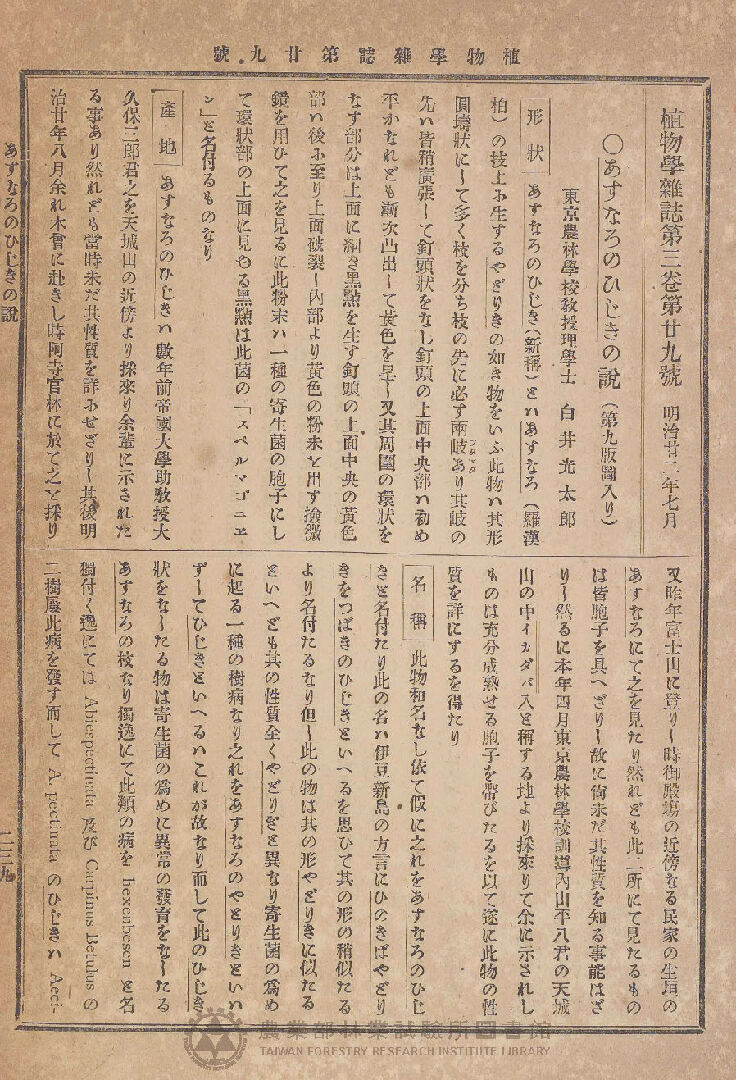 植物學雜誌第廿九號
植物學雜誌第三卷第廿九號 明治廿二年七月
○あすなろのひじきの說(第九版圖入り)
東京農林學校敎授理學士 白井光太郎
形狀 あすなろのひじき(新稱)とハあすなろ(羅漢
柏)の枝上ふ生するやどりきの如き物をいふ此物ハ其形
圓墻狀にして多く枝を分ち枝の先に必す兩岐あり其岐の
フタマタ
先ハ皆稍廣張して釘頭狀をなし釘頭の上面中央部ハ初め
平かなれども漸次凸出して黃色を呈し又其周圍の環狀を
なす部分は上面に細き黑點を生す釘頭の上面中央の黃色
部ハ後ふ至り上面破裂し內部より黃色の粉末を出す撿微
鏡を用ひて之を見るに此粉末ハ一種の寄生菌の胞子にし
て環狀部の上面に見ゆる黑點は此菌の「スペルマゴニエ
ン」と名付るものなり
產地 あすなろのひじきハ數年前帝國大學助敎授大
久保三郎君之を天城山の近傍より採來り余輩に示された
る事あり然れども當時未だ其性質を詳ふせざりし其後明
治廿年八月余れ木曾に赴きし時阿寺官林に於て之を採り
又昨年富士山に登りし時御殿塲の近傍なる民家の生垣の
あすなろにて之を見たり然れども此二所にて見たるもの
は皆胞子を具へざりし故に尙未だ其性質を知る事能はざ
りし然るに本年四月東京農林學校訓導內山平八君の天城
山の中イカダバ入と稱する地より採來りて余に示されし
ものは充分成熟せる胞子を帶びたるを以て遂に此物の性
質を詳にするを得たり
名稱 此物和名なし依て假に之れをあすなろのひじ
きと名付たり此の名ハ伊豆新島の方言にひのきばやどり
きをつばきのひじきといへるを思ひて其の形の稍似たる
より名付たるなり但し此の物は其の形やどりきに似たる
といへども其の性質全くやどりきと異なり寄生菌の爲め
に起る一種の樹病なり之れをあすなろのやどりきといハ
ずしてひじきといへるハこれが故なり而して此のひじき
狀をなしたる物は寄生菌の爲めに異常の發育をなしたる
あすなろの枝なり獨逸にて此類の病を hexenbesen と名
獨付く逸にては Abies pectinata 及び Carpinus Betulus の
二樹屢此病を發す而して A. pectinata のひじきハ Aeci-
あすなろのひじきの說
二三九
農業部林業試驗所圖書館
TAIWAN FORESTRY RESEARCH INSTITUTE LIBRARY